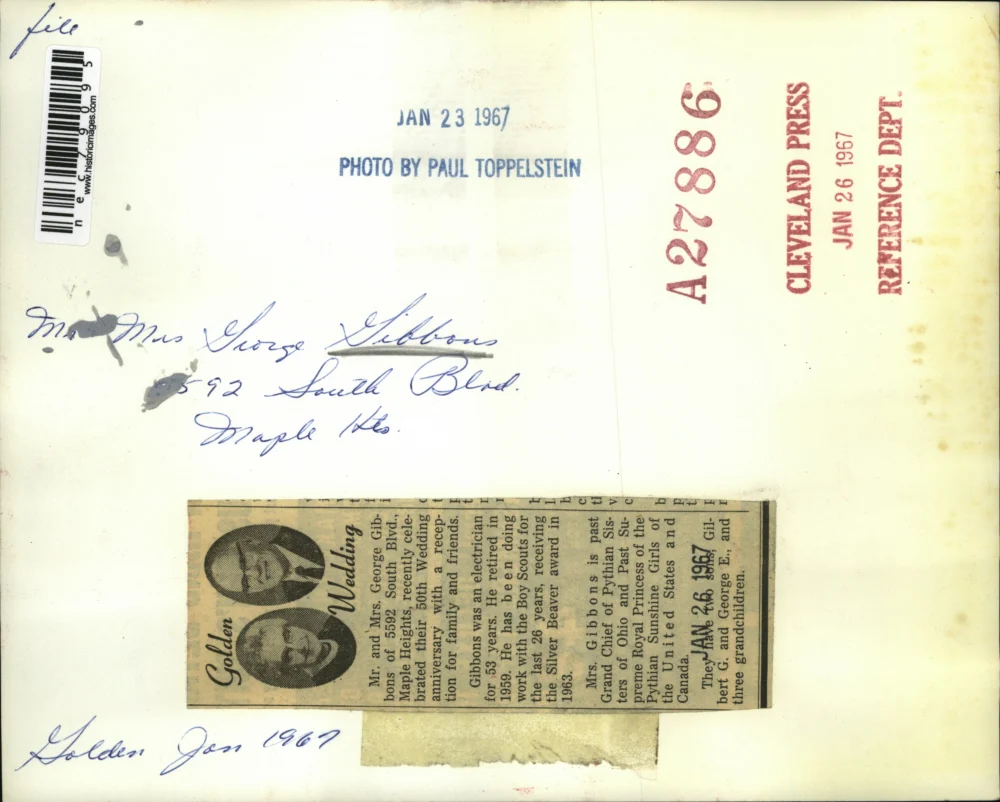 file
nec79095
www.historicimages.com
JAN 23 1967
PHOTO BY PAUL TOPPELSTEIN
A27886
CLEVELAND PRESS
JAN 26 1967
REFERENCE DEPT.
Mrs George Gibbons
592 South Blvd.
Maple Hts.
Golden
Wedding
Mr. and Mrs. George Gib-
bons of 5592 South Blvd.,
Maple Heights, recently cele-
brated their 50th Wedding
anniversary with a recep-
tion for family and friends.
Gibbons was an electrician
for 53 years. He retired in
1959. He has been doing
work with the Boy Scouts for
the last 26 years, receiving
the Silver Beaver award in
1963.
Mrs. Gibbons is past
Grand Chief of Pythian Sis-
ters of Ohio and Past Su-
preme Royal Princess of the
Pythian Sunshine Girls of
the United States and
Canada.
They have two sons, Gil-
bert G. and George E., and
three grandchildren.
JAN 26 1967
Golden Jan 1967